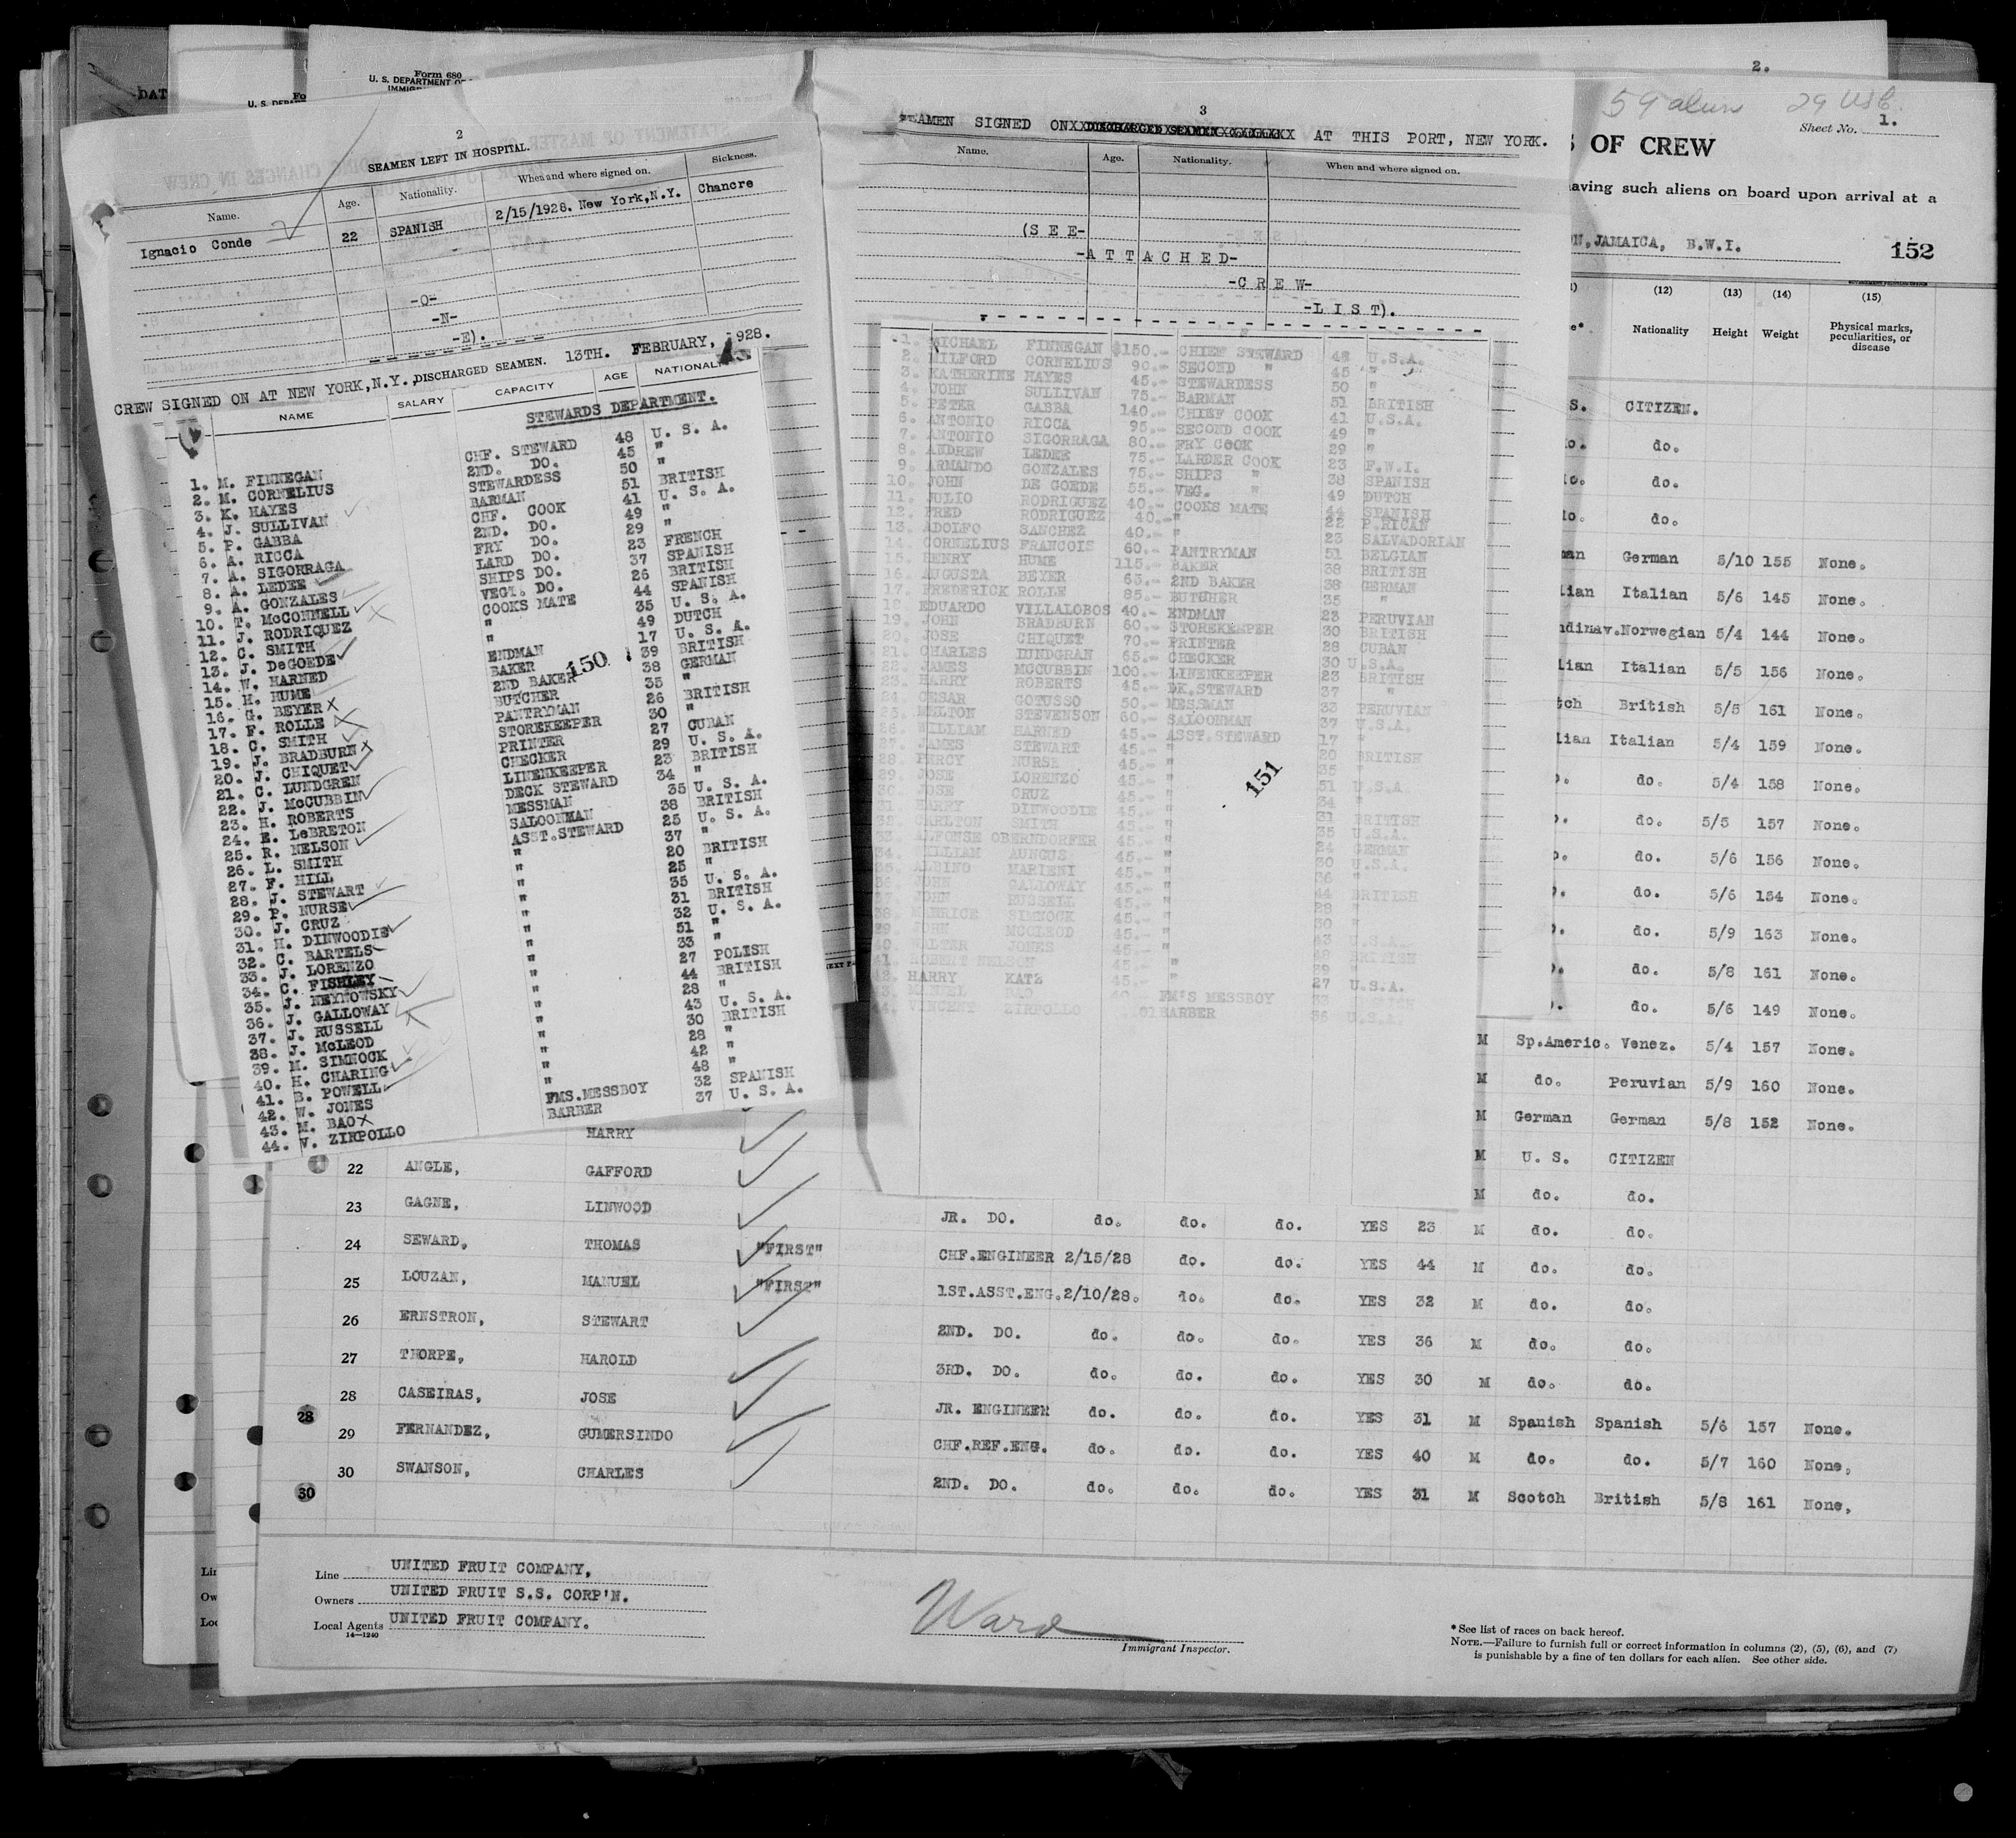 DAT
Form 680
U. S. DEPARTMENT OF
2
SEAMEN LEFT IN HOSPITAL.
Name. Age. Nationality. When and where signed on. Sickness.
Ignacio Conde 22 SPANISH 2/15/1928. New York, N.Y. Chancre
-O-
-N-
-E).
CREW SIGNED ON AT NEW YORK, N.Y., DISCHARGED SEAMEN. 13TH. FEBRUARY, 1928.
NAME SALARY CAPACITY AGE NATIONALITY
STEWARDS DEPARTMENT.
1. M. FINNEGAN CHF. STEWARD 48 U. S. A.
2. M. CORNELIUS 2ND. DO. 45 "
3. K. HAYES STEWARDESS 50 "
4. J. SULLIVAN BARMAN 51 BRITISH
5. P. GABBA CHF. COOK 41 U. S. A.
6. A. RICCA 2ND. DO. 49 "
7. A. SIGORRAGA FRY DO. 29 "
8. A. LEDEE LARD DO. 23 FRENCH
9. A. GONZALES SHIPS DO. 37 SPANISH
10. T. McCONNELL VEGT. DO. 26 BRITISH
11. J. RODRIQUEZ COOKS MATE 44 SPANISH
12. C. SMITH " 35 U. S. A.
13. J. DeGOEDE " 49 DUTCH
14. W. HARNED ENDMAN 17 U. S. A.
15. H. HUME BAKER 39 BRITISH
16. G. BEYER 2ND BAKER 38 GERMAN
17. F. ROLLE BUTCHER 35 "
18. C. SMITH PANTRYMAN 26 BRITISH
19. J. BRADBURN STOREKEEPER 30 "
20. J. CHIQUET PRINTER 27 CUBAN
21. C. LUNDGREN CHECKER 29 U. S. A.
22. J. McCUBBIN LINENKEEPER 23 BRITISH
23. H. ROBERTS DECK STEWARD 34 "
24. E. LeBRETON MESSMAN 35 U. S. A.
25. R. NELSON SALOONMAN 38 BRITISH
26. L. SMITH ASST. STEWARD 25 U. S. A.
27. F. HILL " 37 "
28. J. STEWART " 20 BRITISH
29. P. NURSE " 25 "
30. J. CRUZ " 35 U. S. A.
31. H. DINWOODIE " 31 BRITISH
32. C. BARTELS " 32 U. S. A.
33. J. LORENZO " 51 "
34. C. FISHLEY " 33 "
35. J. NEYNOWSKY " 27 POLISH
36. J. GALLOWAY " 44 BRITISH
37. J. RUSSELL " 28 "
38. J. McLEOD " 43 U. S. A.
39. M. SIMNOCK " 30 BRITISH
40. H. CHARING " 28 "
41. B. POWELL " 42 "
42. W. JONES " 48 "
43. M. BAO FMS. MESSBOY 32 SPANISH
44. V. ZIRPOLLO BARBER 37 U. S. A.
150
3
SEAMEN SIGNED ON AT THIS PORT, NEW YORK.
Name. Age. Nationality. When and where signed on.
(S E E-
-A T T A C H E D-
-C R E W-
-L I S T).
1. MICHAEL FINNEGAN $150.- CHIEF STEWARD 48 U.S.A.
2. MILFORD CORNELIUS 90.- SECOND " 45 "
3. KATHERINE HAYES 45.- STEWARDESS 50 "
4. JOHN SULLIVAN 75.- BARMAN 51 BRITISH
5. PETER GABBA 140.- CHIEF COOK 41 U.S.A.
6. ANTONIO RICCA 95.- SECOND COOK 49 "
7. ANTONIO SIGORRAGA 80.- FRY COOK 29 "
8. ANDREW LEDEE 75.- LARDER COOK 23 F.W.I.
9. ARMANDO GONZALES 75.- SHIPS " 38 SPANISH
10. JOHN DE GOEDE 55.- VEG. " 49 DUTCH
11. JULIO RODRIGUEZ 40.- COOKS MATE 44 SPANISH
12. FRED RODRIGUEZ 40.- " 22 P.RICAN
13. ADOLFO SANCHEZ 40.- " 23 SALVADORIAN
14. CORNELIUS FRANCOIS 60.- PANTRYMAN 51 BELGIAN
15. HENRY HUME 115.- BAKER 38 BRITISH
16. AUGUSTA BEYER 63.- 2ND BAKER 38 GERMAN
17. FREDERICK ROLLE 85.- BUTCHER 35 "
18. EDUARDO VILLALOBOS 40.- ENDMAN 23 PERUVIAN
19. JOHN BRADBURN 60.- STOREKEEPER 30 BRITISH
20. JOSE CHIQUET 70.- PRINTER 28 CUBAN
21. CHARLES LUNDGRAN 65.- CHECKER 30 U.S.A.
22. JAMES MCCUBBIN 100.- LINENKEEPER 23 BRITISH
23. HARRY ROBERTS 45.- DK.STEWARD 37 "
24. CESAR GOTUSSO 50.- MESSMAN 33 PERUVIAN
25. MELTON STEVENSON 60.- SALOONMAN 37 U.S.A.
26. WILLIAM HARNED 45.- ASST.STEWARD 17 "
27. JAMES STEWART 45.- " 20 BRITISH
28 PERCY NURSE 45.- " 35 "
29. JOSE LORENZO 45.- " 51 U.S.A.
30. JOSE CRUZ 45.- " 34 "
31. HARRY DINWOODIE 45.- " 31 BRITISH
32. CARLTON SMITH 45.- " 35 U.S.A.
33. ALFONSE OBERNDORFER 45.- " 24 GERMAN
34. WILLIAM AUNGUS 45.- " 30 U.S.A.
35. ALBINO MARIENI 45.- " 36 "
36. JOHN GALLOWAY 45.- " 44 BRITISH
37. JOHN RUSSELL 45.- " 28 "
38. MAURICE SIMNOCK 45.- " 30 "
39. JOHN MCCLEOD 45.- " 43 U.S.A.
40. WALTER JONES 45.- " 48 BRITISH
41. ROBERT NELSON 45.- " 39 "
42. HARRY KATZ 45.- " 27 U.S.A.
43. MANUEL BAO FM'S MESSBOY 33
44. VINCENT ZIRPOLLO .01 BARBER 36 U.S.A.
151
2.
59 alien 29 USC.
Sheet No. 1.
S OF CREW
having such aliens on board upon arrival at a
JAMAICA, B.W.I. 152
(12) (13) (14) (15)
Nationality Height Weight Physical marks, peculiarities, or disease
S. CITIZEN.
do. do.
do. do.
do. do.
German 5/10 155 None.
Italian 5/6 145 None.
Norwegian 5/4 144 None.
Italian 5/5 156 None.
British 5/5 161 None.
Italian 5/4 159 None.
do. 5/4 158 None.
do. 5/5 157 None.
do. 5/6 156 None.
do. 5/6 154 None.
do. 5/9 163 None.
do. 5/8 161 None.
do. 5/6 149 None.
M Sp.Americ. Venez. 5/4 157 None.
M do. Peruvian 5/9 160 None.
M German German 5/8 152 None.
HARRY M U. S. CITIZEN
22 ANGLE, GAFFORD M do. do.
23 GAGNE, LINWOOD JR. DO. do. do. do. YES 23 M do. do.
24 SEWARD, THOMAS "FIRST" CHF.ENGINEER 2/15/28 do. do. YES 44 M do. do.
25 LOUZAN, MANUEL "FIRST" 1ST.ASST.ENG. 2/10/28. do. do. YES 32 M do. do.
26 ERNSTRON, STEWART 2ND. DO. do. do. do. YES 36 M do. do.
27 THORPE, HAROLD 3RD. DO. do. do. do. YES 30 M do. do.
28 CASEIRAS, JOSE JR. ENGINEER do. do. do. YES 31 M Spanish Spanish 5/6 157 None.
29 FERNANDEZ, GUMERSINDO CHF.REF.ENG. do. do. do. YES 40 M do. do. 5/7 160 None.
30 SWANSON, CHARLES 2ND. DO. do. do. do. YES 31 M Scotch British 5/8 161 None.
28
30
Line UNITED FRUIT COMPANY,
Owners UNITED FRUIT S.S. CORP'N.
Local Agents UNITED FRUIT COMPANY.
14—1240
Ward
Immigrant Inspector.
*See list of races on back hereof.
NOTE.—Failure to furnish full or correct information in columns (2), (5), (6), and (7)
is punishable by a fine of ten dollars for each alien. See other side.